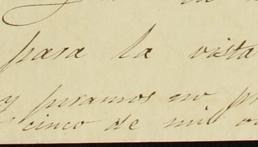 para la vista
y juramos no
cinco de mil